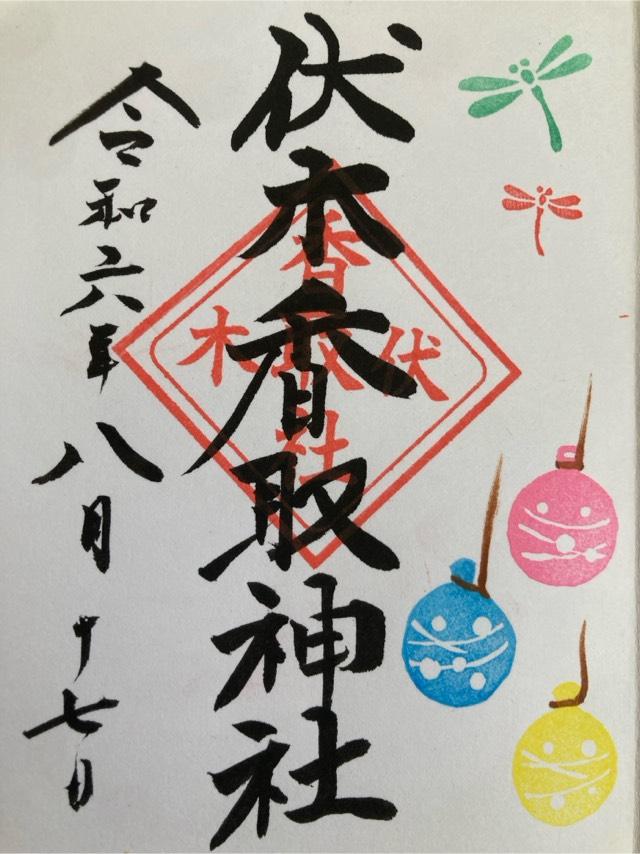 伏木香取神社
令和六年八月十七日
伏木
香取
社